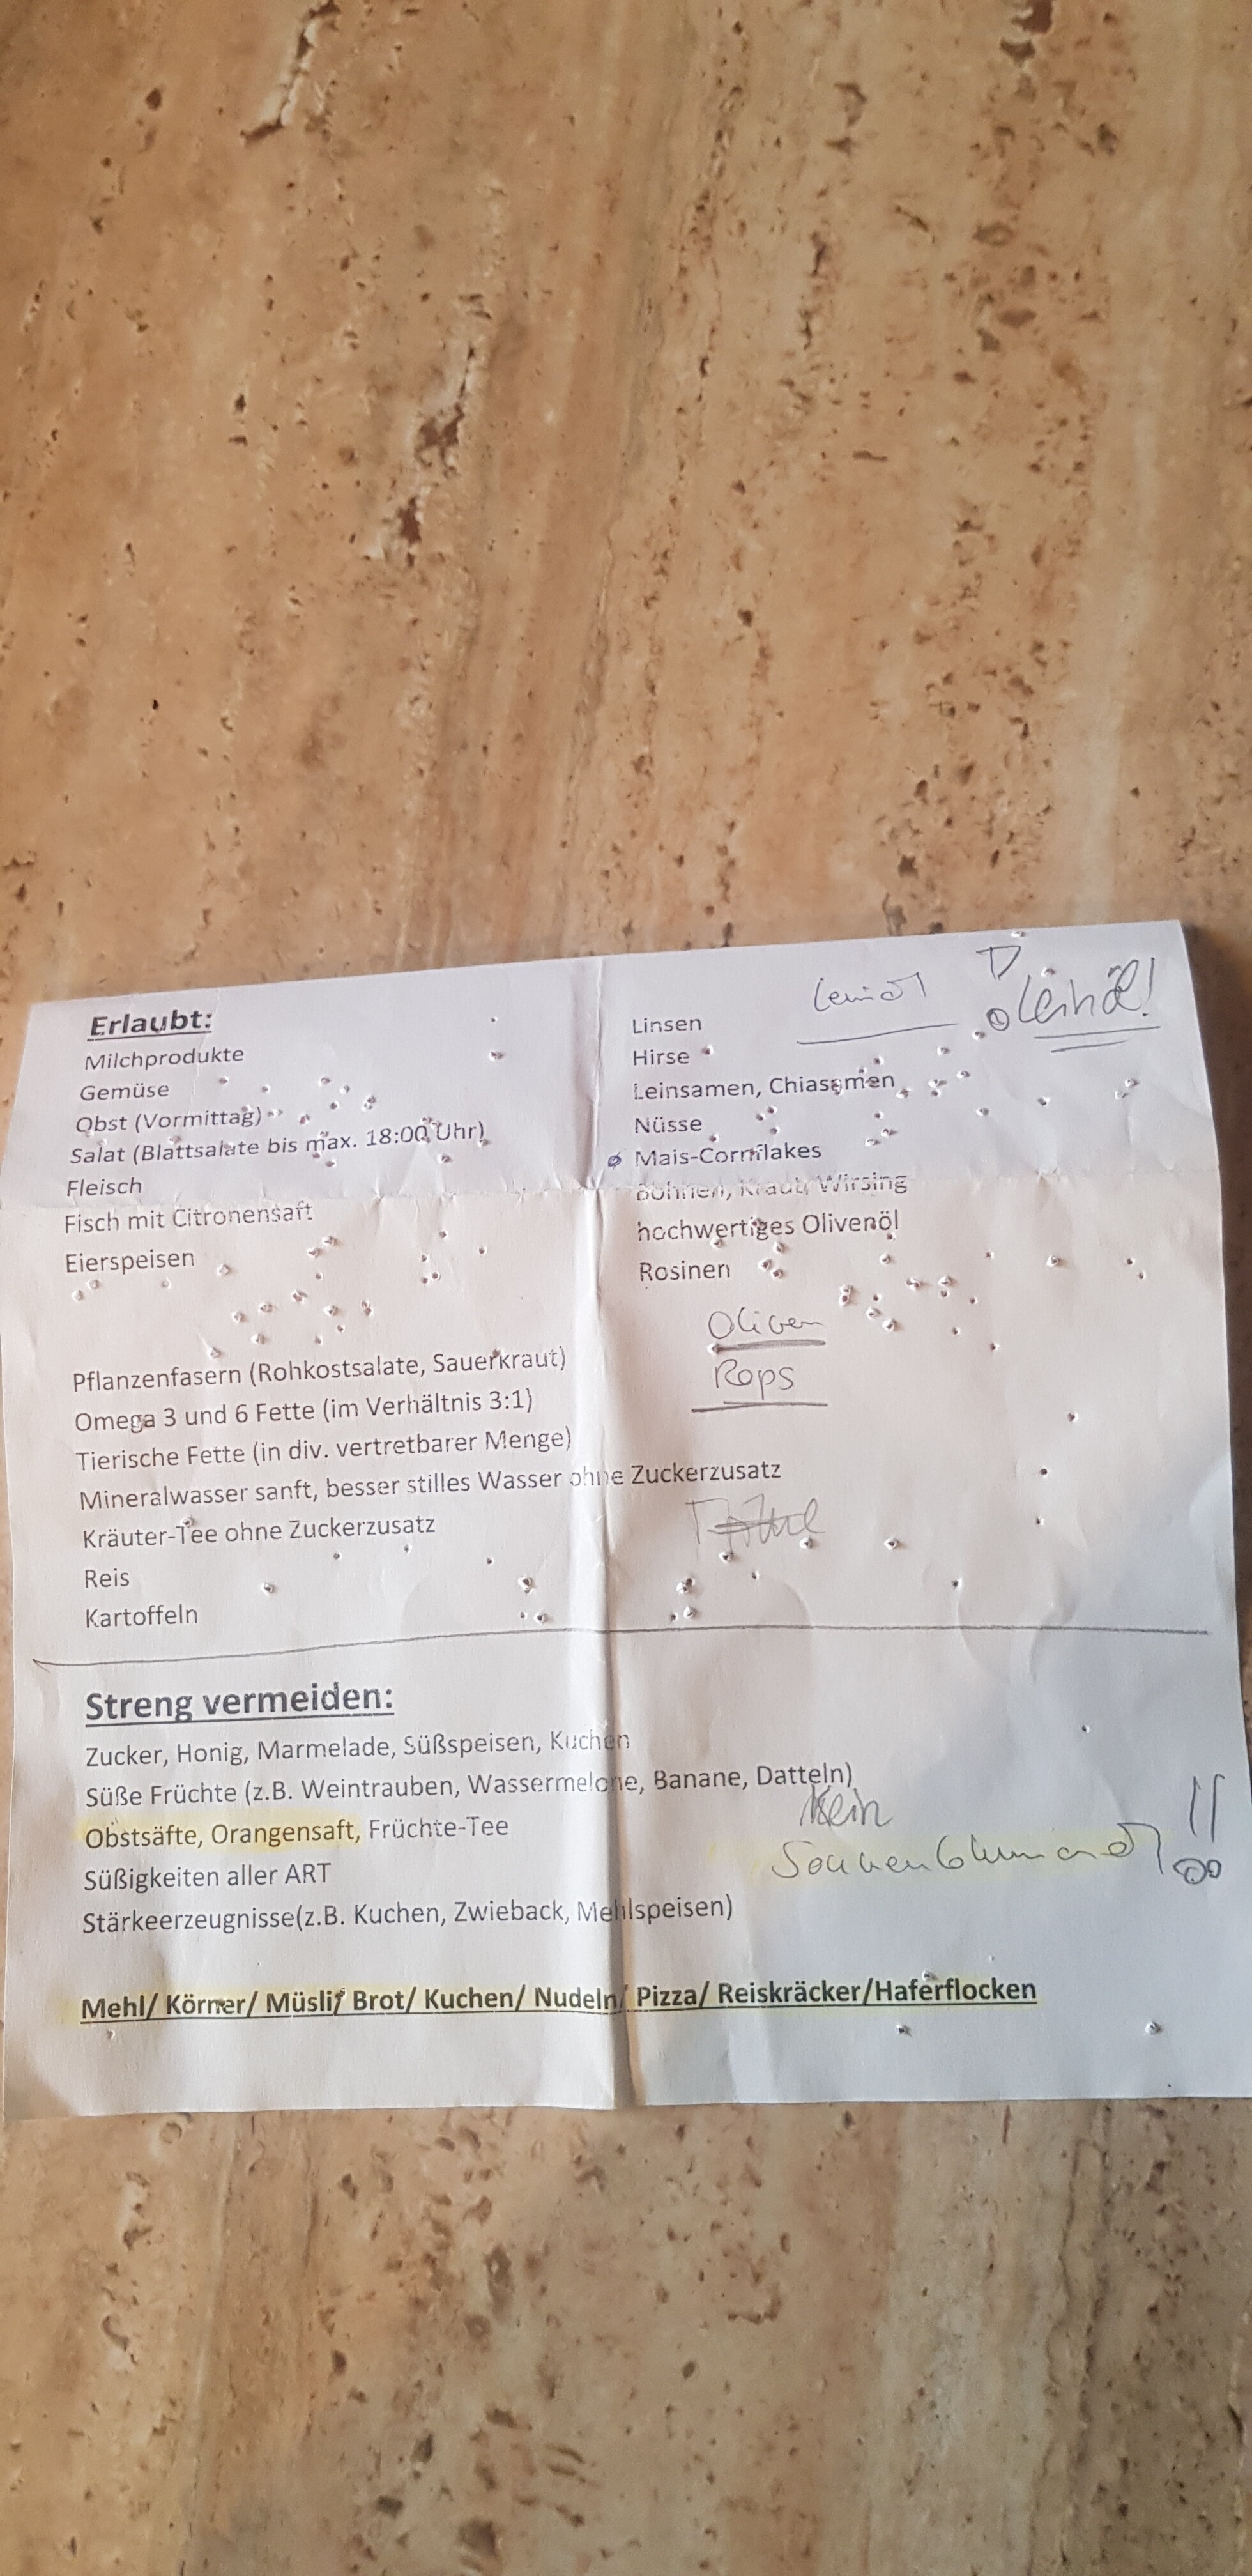 Erlaubt:
Milchprodukte
Gemüse
Obst (Vormittag)
Salat (Blattsalate bis max. 18:00 Uhr)
Fleisch
Fisch mit Citronensaft
Eierspeisen
Pflanzenfasern (Rohkostsalate, Sauerkraut)
Omega 3 und 6 Fette (im Verhältnis 3:1)
Tierische Fette (in div. vertretbarer Menge)
Mineralwasser sanft, besser stilles Wasser ohne Zuckerzusatz
Kräuter-Tee ohne Zuckerzusatz
Reis
Kartoffeln
Leinöl
Leinöl!
Linsen
Hirse
Leinsamen, Chiasamen
Nüsse
ø Mais-Cornflakes
Bohnen, Kraut, Wirsing
hochwertiges Olivenöl
Rosinen
Oliven
Rops
Streng vermeiden:
Zucker, Honig, Marmelade, Süßspeisen, Kuchen
Süße Früchte (z.B. Weintrauben, Wassermelone, Banane, Datteln)
Obstsäfte, Orangensaft, Früchte-Tee
Süßigkeiten aller ART
Stärkeerzeugnisse(z.B. Kuchen, Zwieback, Mehlspeisen)
Kein
Sonnenblumenöl!!
Mehl/ Körner/ Müsli/ Brot/ Kuchen/ Nudeln/ Pizza/ Reiskräcker/Haferflocken